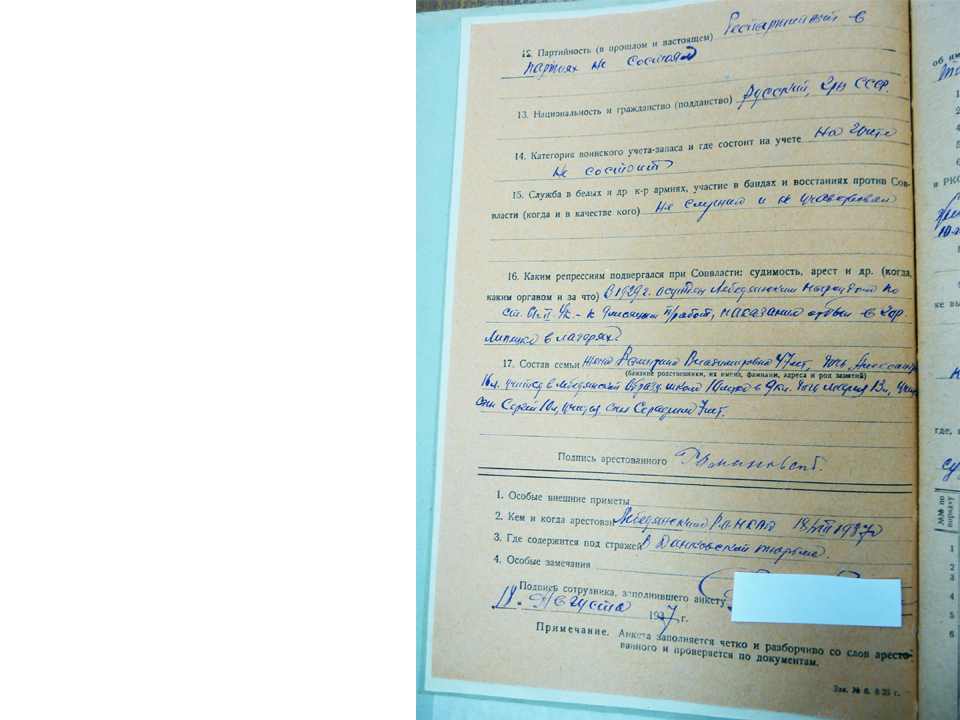 12. Партийность (в прошлом и настоящем) Беспартийный в
партиях не состоял
13. Национальность и гражданство (подданство) Русский, гр. СССР.
14. Категория воинского учета-запаса и где состоит на учете На учете
не состоит
15. Служба в белых и др к-р армиях, участие в бандах и восстаниях против Сов-
власти (когда и в качестве кого) Не служил и не участвовал
16. Каким репрессиям подвергался при Соввласти: судимость, арест и др. (когда,
каким органом и за что) В 1929 г. осужден Лебедянским нарсудом по
ст. УК - к п/работ, наказание отбыл в гор.
Липецке в лагерях.
17. Состав семьи жена Владимировна 47 лет, дочь Александра
(близкие родственники, их имена, фамилии, адреса и род занятий)
16 л. учится в Лебедянской образц. школе в 9 кл. дочь Мария 13 л, учится
сын Сергей 10 л, учится сын Серафим 7 лет.
Подпись арестованного
1. Особые внешние приметы
2. Кем и когда арестован Лебедянским РО НКВД 18/VIII 1937 г
3. Где содержится под стражей в Данковской тюрьме.
4. Особые замечания
Подпись сотрудника, заполнившего анкету
18. Августа 1937 г.
Примечание. Анкета заполняется четко и разборчиво со слов аресто-
ванного и проверяется по документам.
Зак. № 6. 8 35 г.
об им
1
2
4
5
6
и РКС
8
ке вы
где, к
№№ по
порядку
1
2
3
4
5
6